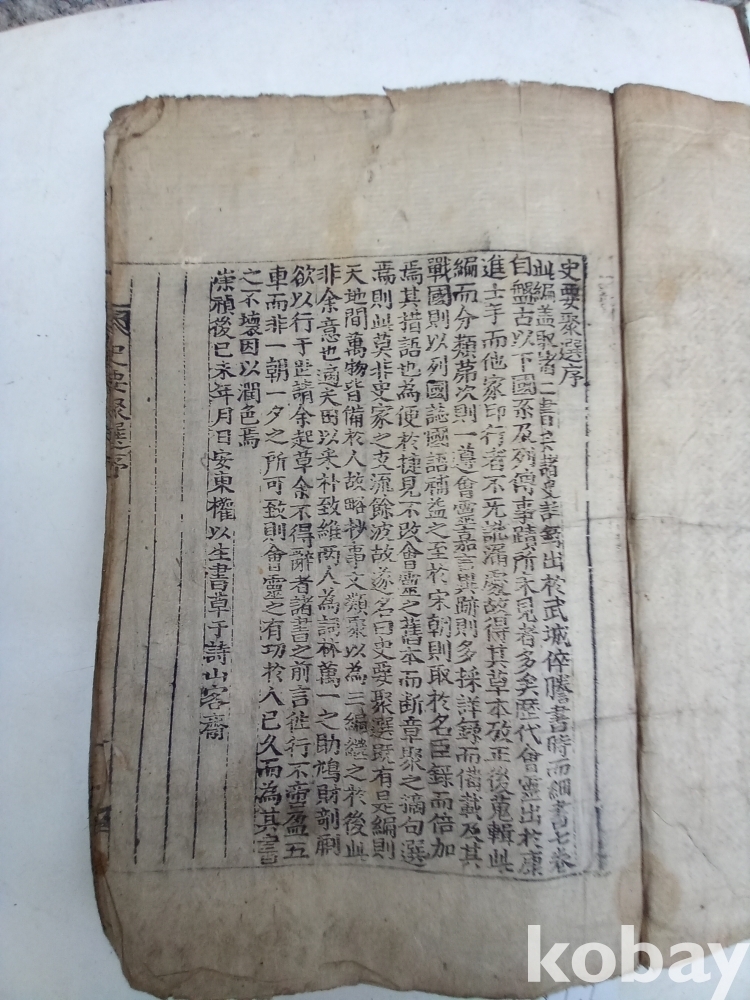 史要聚選序
此編盖取諸二書於諸史詳錄出於武城倅謄書時而細書七卷
自盤古以下國系及列傳事蹟所未見者多矣歷代會靈出於康
進士手而他家印行者不免訛漏處故得其草本攷正後蒐輯此
編而分類第次則一遵會靈嘉言異跡則多採詳錄而備載及其
戰國則以列國誌國語補益之至於宋朝則取於名臣錄而倍加
焉其措語也為便於捷見不改會靈之舊本而断章聚之摘句選
焉則此莫非史家之支流餘波故遂名曰史要聚選既有是編則
天地間萬物皆備於人故略抄事文類聚以為三編繼之於後此
非余意也適吳田以采朴致維兩人為詞林萬一之助鳩財剞劂
欲以行于世請余起草余不得辭者諸書之前言徃行不啻盈五
車而非一朝一夕之所可致則會靈之有功於人已久而為其書
之不壞因以潤色焉
崇禎後己未年月日安東權以生書草于詩山客齋
史要聚選序
kobay